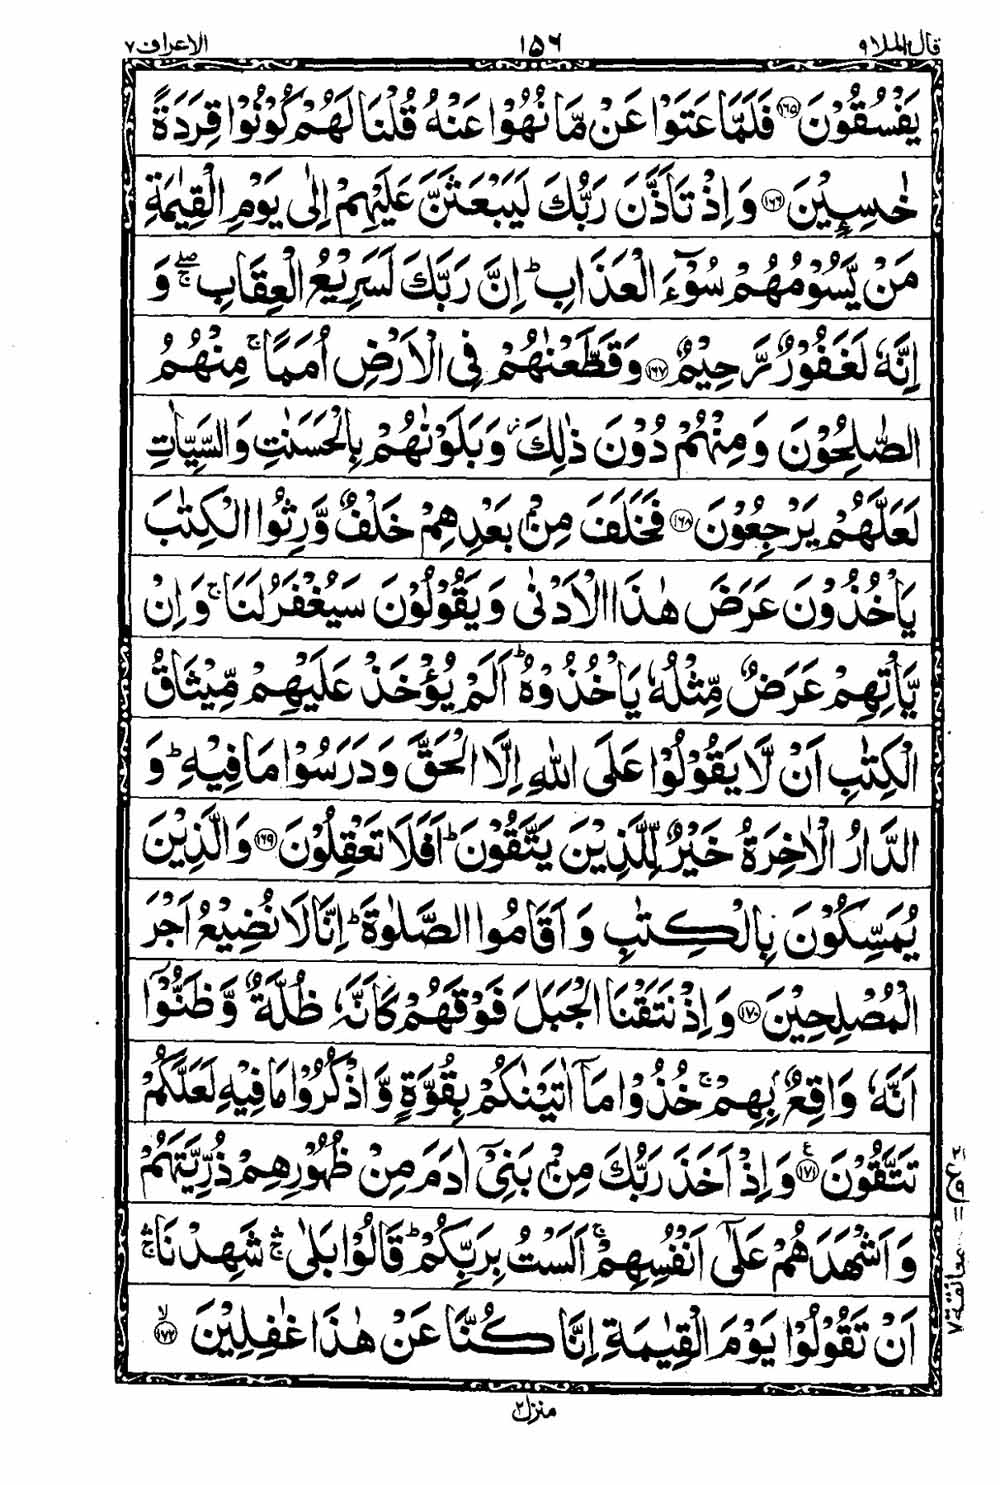 قال الملا ٩ ١٥٦ الاعراف ٧
يَفْسُقُوْنَ ۝١٦٥ فَلَمَّا عَتَوْا عَنْ مَّا نُهُوْا عَنْهُ قُلْنَا لَهُمْ كُوْنُوْا قِرَدَةً
خٰسِـِٕيْنَ ۝١٦٦ وَاِذْ تَاَذَّنَ رَبُّكَ لَيَبْعَثَنَّ عَلَيْهِمْ اِلٰى يَوْمِ الْقِيٰمَةِ
مَنْ يَّسُوْمُهُمْ سُوْٓءَ الْعَذَابِ ؕ اِنَّ رَبَّكَ لَسَرِيْعُ الْعِقَابِ ۚۖ وَ
اِنَّهٗ لَغَفُوْرٌ رَّحِيْمٌ ۝١٦٧ وَقَطَّعْنٰهُمْ فِى الْاَرْضِ اُمَمًا ۚ مِنْهُمُ
الصّٰلِحُوْنَ وَمِنْهُمْ دُوْنَ ذٰلِكَ ؗ وَبَلَوْنٰهُمْ بِالْحَسَنٰتِ وَالسَّيِّاٰتِ
لَعَلَّهُمْ يَرْجِعُوْنَ ۝١٦٨ فَخَلَفَ مِنْۢ بَعْدِهِمْ خَلْفٌ وَّرِثُوا الْكِتٰبَ
يَاْخُذُوْنَ عَرَضَ هٰذَا الْاَدْنٰى وَيَقُوْلُوْنَ سَيُغْفَرُ لَنَا ۚ وَاِنْ
يَّاْتِهِمْ عَرَضٌ مِّثْلُهٗ يَاْخُذُوْهُ ؕ اَلَمْ يُؤْخَذْ عَلَيْهِمْ مِّيْثَاقُ
الْكِتٰبِ اَنْ لَّا يَقُوْلُوْا عَلَى اللّٰهِ اِلَّا الْحَقَّ وَدَرَسُوْا مَا فِيْهِ ؕ وَ
الدَّارُ الْاٰخِرَةُ خَيْرٌ لِّلَّذِيْنَ يَتَّقُوْنَ ؕ اَفَلَا تَعْقِلُوْنَ ۝١٦٩ وَالَّذِيْنَ
يُمَسِّكُوْنَ بِالْكِتٰبِ وَاَقَامُوا الصَّلٰوةَ ؕ اِنَّا لَا نُضِيْعُ اَجْرَ
الْمُصْلِحِيْنَ ۝١٧٠ وَاِذْ نَتَقْنَا الْجَبَلَ فَوْقَهُمْ كَاَنَّهٗ ظُلَّةٌ وَّظَنُّوْٓا
اَنَّهٗ وَاقِعٌۢ بِهِمْ ۚ خُذُوْا مَآ اٰتَيْنٰكُمْ بِقُوَّةٍ وَّاذْكُرُوْا مَا فِيْهِ لَعَلَّكُمْ
تَتَّقُوْنَ ۝١٧١ ع وَاِذْ اَخَذَ رَبُّكَ مِنْۢ بَنِىْٓ اٰدَمَ مِنْ ظُهُوْرِهِمْ ذُرِّيَّتَهُمْ
وَاَشْهَدَهُمْ عَلٰٓى اَنْفُسِهِمْ ۚ اَلَسْتُ بِرَبِّكُمْ ؕ قَالُوْا بَلٰى ۛۚ شَهِدْنَا ۛۚ
اَنْ تَقُوْلُوْا يَوْمَ الْقِيٰمَةِ اِنَّا كُنَّا عَنْ هٰذَا غٰفِلِيْنَ ۝١٧٢ ۙ
معانقة ٧
منزل ٢